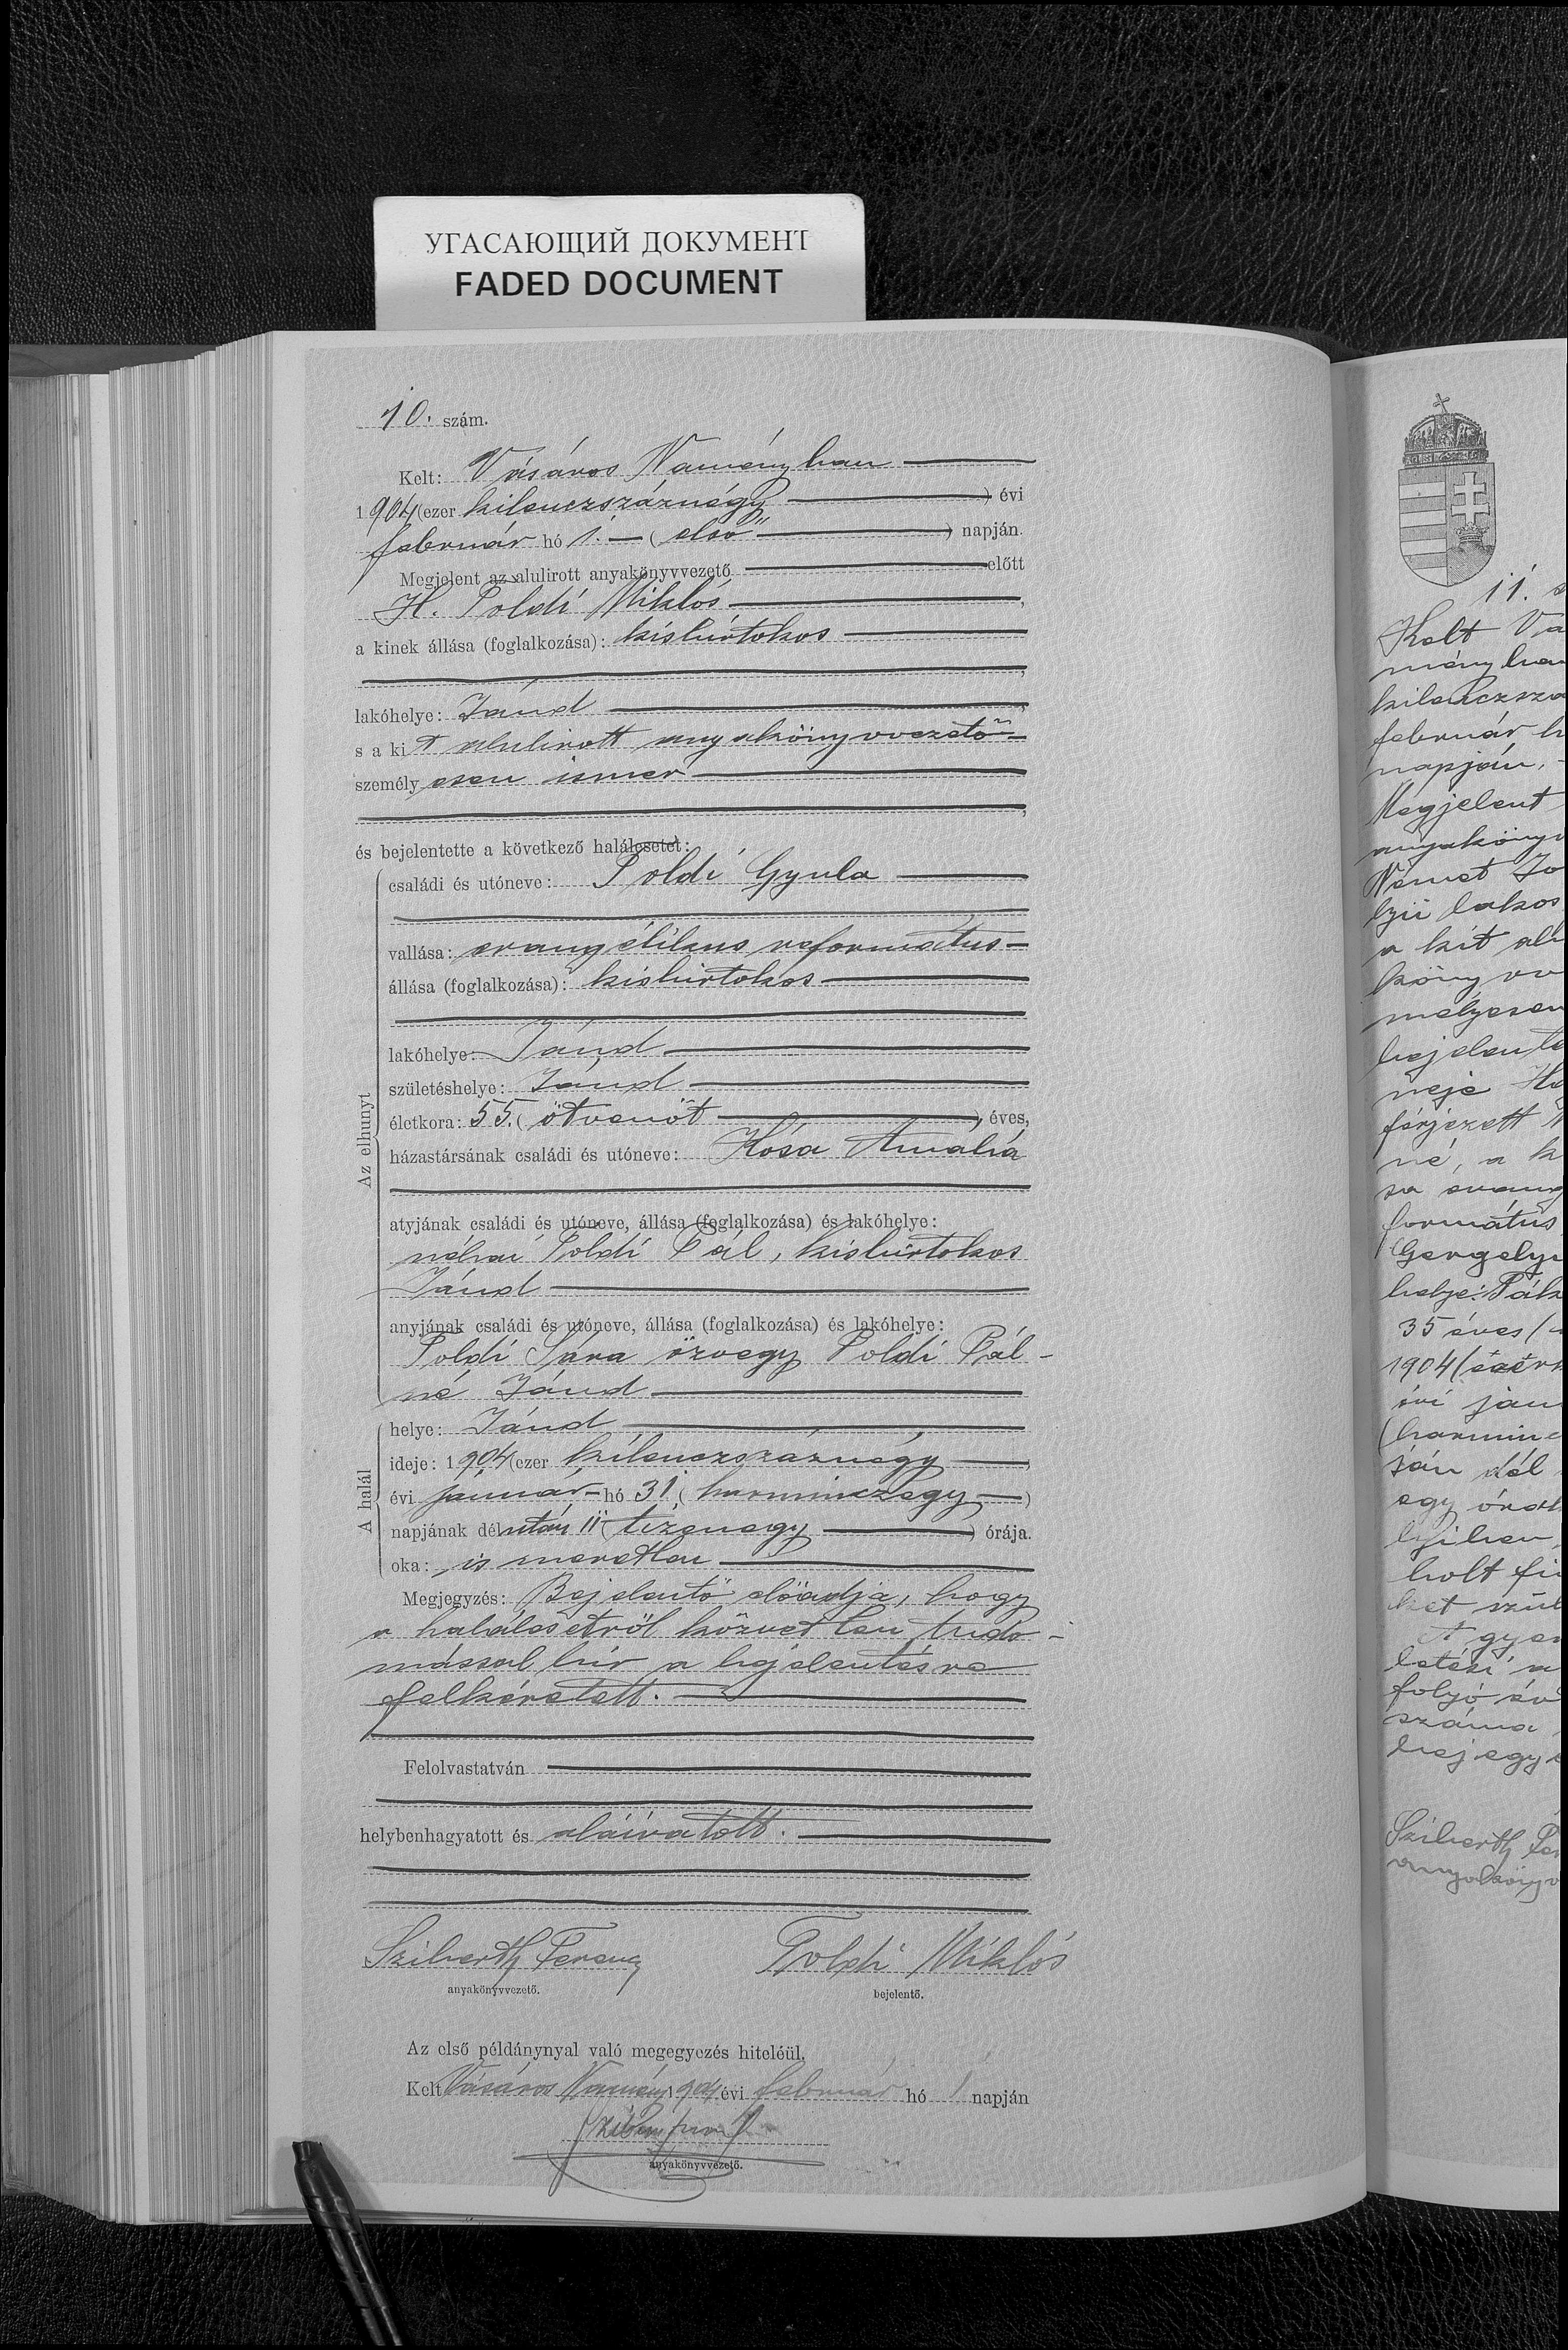 УГАСАЮЩИЙ ДОКУМЕНТ
FADED DOCUMENT
10. szám.
Kelt: Vásáros Naményban
1904 (ezer kilenczszáznégy) évi
február hó 1. (első) napján.
Megjelent az alulirott anyakönyvvezető előtt
H. Toldi Miklós,
a kinek állása (foglalkozása): kisbirtokos
lakóhelye: Jánd
s a kit alulirott anyakönyvvezető
személyesen ismer
és bejelentette a következő halálesetet:
Az elhunyt
családi és utóneve: Toldi Gyula
vallása: evangélikus református
állása (foglalkozása): kisbirtokos
lakóhelye: Jánd
születéshelye: Jánd
életkora: 55. (ötvenöt) éves,
házastársának családi és utóneve: Kósa Amália
atyjának családi és utóneve, állása (foglalkozása) és lakóhelye:
néhai Toldi Pál, kisbirtokos
Jánd
anyjának családi és utóneve, állása (foglalkozása) és lakóhelye:
Toldi Sára özvegy Toldi Pál-
né Jánd
A halál
helye: Jánd
ideje: 1904 (ezer kilenczszáznégy
évi január hó 31 (harminczegy)
napjának délután 11 (tizenegy) órája.
oka: ismeretlen
Megjegyzés: Bejelentő előadja, hogy
a halálesetről közvetlen tudo-
mással bír a bejelentésre
felkéretett.
Felolvastatván
helybenhagyatott és aláíratott.
Sziberth Ferencz
anyakönyvvezető.
Toldi Miklós
bejelentő.
Az első példánynyal való megegyezés hiteléül.
Kelt Vásáros Namény 1904 évi február hó 1 napján
anyakönyvvezető.
11.
Kelt Vá
ményban
kilenczszá
február h
napján.
Megjelent
anyakönyv
Német Jó
lyii lakos
a kit alu
könyvv
mélyesen
bejelente
neje
férjezett
né, a k
sa evang
formátus
Gergelyi
helye:
35 éves (
1904 (ezer
évi jan
(harmincz
ján dél
egy óra
lyiben,
holt fi
ket szül
A gyer
letési a
folyó év
száma
bejegy
Sziberth Fer
anyakönyv